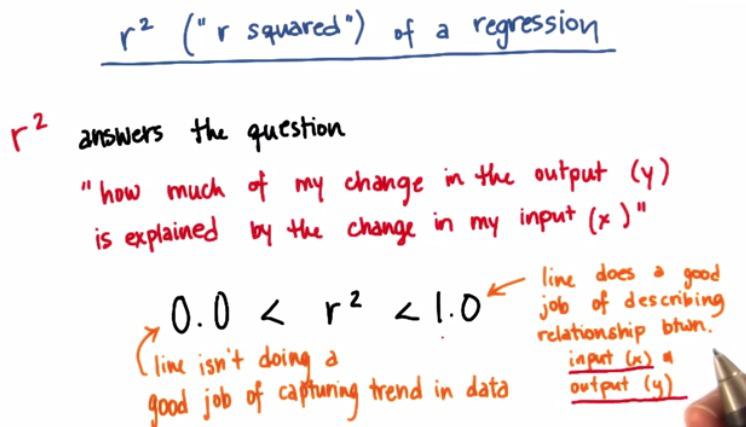 r² ("r squared") of a regression
r² answers the question
"how much of my change in the output (y)
is explained by the change in my input (x)"
0.0 < r² < 1.0
line isn't doing a
good job of capturing trend in data
line does a good
job of describing
relationship btwn.
input (x) &
output (y)